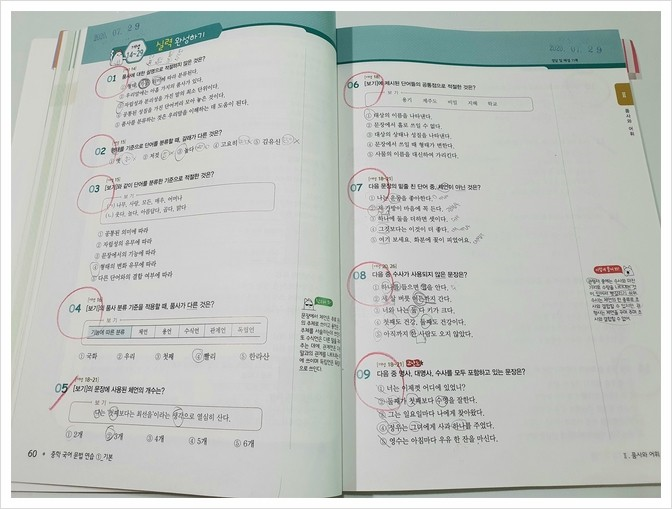 2020. 07. 29
14~29 실력 완성하기
01 품사에 대한 설명으로 적절하지 않은 것은?
① 형태, 기능, 의미에 따라 분류된다.
② 우리말에는 아홉 가지의 품사가 있다.
③ 자립성과 분리성을 가진 말의 최소 단위이다.
④ 공통된 성질을 가진 단어끼리 모아 놓은 것이다.
⑤ 품사를 분류하는 것은 우리말을 이해하는 데 도움이 된다.
02 형태를 기준으로 단어를 분류할 때, 갈래가 다른 것은?
① 옛 ② 저것 ③ 놀다 ④ 고요히 ⑤ 김유신
03 [보기]와 같이 단어를 분류한 기준으로 적절한 것은?
보기
(ㄱ) 나무, 사랑, 모든, 매우, 어머나
(ㄴ) 웃다, 놀다, 아름답다, 곱다, 맑다
① 공통된 의미에 따라
② 자립성의 유무에 따라
③ 문장에서의 기능에 따라
④ 형태의 변화 유무에 따라
⑤ 다른 단어와의 결합 여부에 따라
04 [보기]의 품사 분류 기준을 적용할 때, 품사가 다른 것은?
보기
기능에 따른 분류 체언 용언 수식언 관계언 독립언
① 국화 ② 우리 ③ 첫째 ④ 빨리 ⑤ 한라산
05 18~21
[보기]의 문장에 사용된 체언의 개수는?
보기
나는 '최고보다는 최선을'이라는 생각으로 열심히 산다.
① 2개 ② 3개 ③ 4개 ④ 5개 ⑤ 6개
60 • 중학 국어 문법 연습 ① 기본
07 29
정답 및 해설
06 [보기]에 제시된 단어들의 공통점으로 적절한 것은?
보기
용기 제주도 바람 지혜 학교
① 대상의 이름을 나타낸다.
② 문장에서 홀로 쓰일 수 없다.
③ 대상의 상태나 성질을 나타낸다.
④ 문장에서 쓰일 때 형태가 변한다.
⑤ 사물의 이름을 대신하여 가리킨다.
07 18~21
다음 문장의 밑줄 친 단어 중, 체언이 아닌 것은?
① 나는 운동을 좋아한다.
② 새 가방이 마음에 꼭 든다.
③ 하나에 둘을 더하면 셋이다.
④ 그것보다는 이것이 더 좋다.
⑤ 여기 보세요. 화분에 꽃이 피었어요.
08 20, 26
다음 중 수사가 사용되지 않은 문장은?
① 하나를 들으면 열을 한다.
② 세 살 버릇 여든까지 간다.
③ 너와 나는 둘 다 키가 크다.
④ 첫째도 건강, 둘째도 건강이다.
⑤ 아직까지 한 사람도 오지 않았다.
09 18~21
다음 중 명사, 대명사, 수사를 모두 포함하고 있는 문장은?
① 너는 이제껏 어디에 있었니?
② 둘째가 첫째보다 수영을 잘한다.
③ 그는 일요일마다 나에게 찾아왔다.
④ 정우는 그녀에게 사과 하나를 주었다.
⑤ 영수는 아침마다 우유 한 잔을 마신다.
Ⅱ. 품사와 어휘